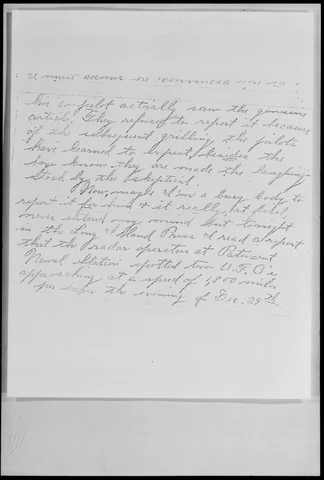 his co-pilot actually saw the genuine
article. They refused to report it because
of the subsequent grilling the pilots
have learned to expect, besides the
boys know they are made the laughing
stock by the skeptical.
Now, maybe I'm a busy body to
report it for him & it really, at first,
never entered my mind but tonight
in the Long Island Press I read a report
that the radar operator at Patuxent
Naval Station spotted two U.F.O.s
approaching at a speed of 4,800 miles
per hour the evening of Dec. 29th.